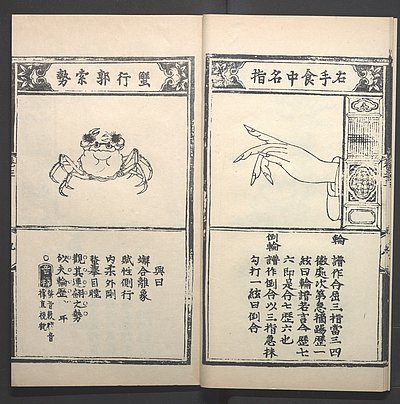 右手食中名指
輪
譜作合屈三指當三四
徽處次第急摘踢歷一
絃曰輪譜若言合歷七
六即是合七歷六也
倒輪
譜作倒合以三指急抹
勾打一絃曰倒合
蟹行郭索勢
興曰
蠏合離象
賦性側行
內柔外剛
螯舉目瞠
觀其連翩之勢
夫輪歷耳